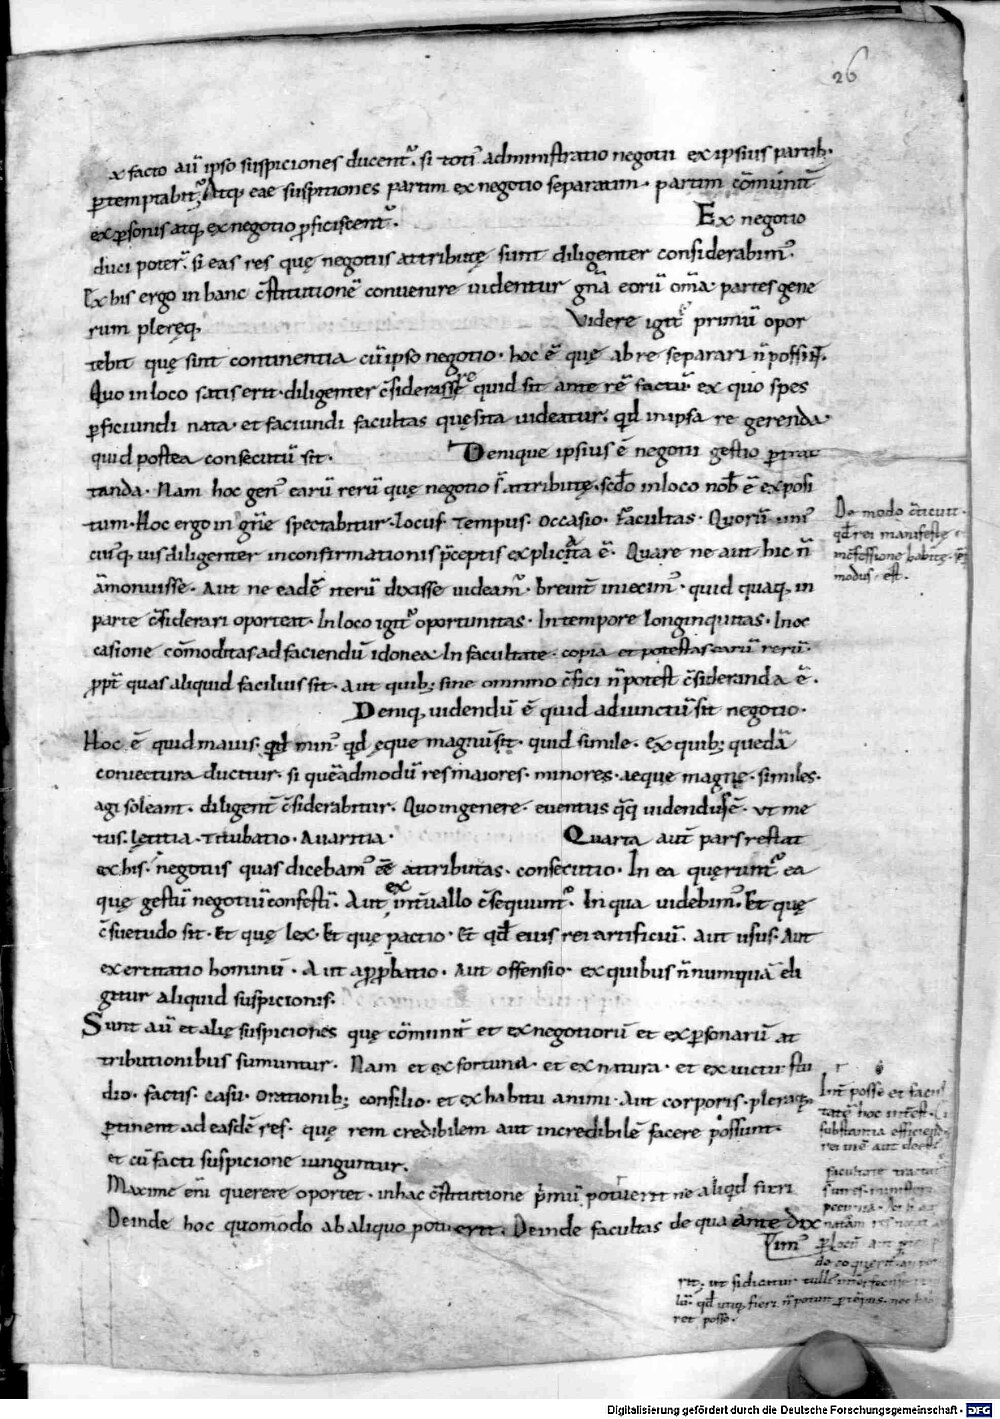 26
ex facto aũ ipso suspiciones ducent᷒. si toti᷒ administratio negotii ex ipsius partib;
ꝑtemptabit᷒. Atq; eae suspitiones partim ex negotio separatim · partim cõmunit̃
ex ꝑsonis atq; ex negotio ꝓficiscent᷒.
Ex negotio
duci poter̃. si eas res quę negotiis attributę sunt diligenter considerabim᷒.
Ex his ergo in hanc c̃stitutionẽ convenire videntur gña eorũ om̃a partes gene
rum pleręq;
Videre igit᷒ primũ opor
tebit quę sint continentia cũ ipso negotio · hoc ẽ quę ab re separari ñ possint.
Quo in loco satis erit · diligenter c̃siderasse quid sit ante rẽ factũ ex quo spes
ꝑficiundi nata · et faciundi facultas quęsita videatur. qd̃ in ipsa re gerenda
quid postea consecutũ sit.
Denique ipsius ẽ negotii gestio ꝑtrac
tanda · Nam hoc gen᷒ earũ rerũ quę negotio s̃ attributę · scd̃o in loco nob̃ ẽ exposi
tum · Hoc ergo in gñe spectabitur · locus · Tempus · occasio · Facultas · Quorũ uni᷒
cui᷒q; vis diligenter in confirmationis p̃ceptis explicata ẽ · Quare ne aut hic ñ
ãmonuisse · Aut ne eadẽ iterũ dixisse videam᷒ · brevit̃ iniecim᷒ · quid quaq; in
parte c̃siderari oporteat · In loco igit᷒ oportunitas · In tempore longinquitas · In oc
casione cõmoditas ad faciendũ idonea · In facultate · copia et potestas earũ rerũ ·
ꝓpt̃ quas aliquid facilius fit · Aut quib; sine omnino c̃fici ñ potest c̃sideranda ẽ ·
Deniq; videndũ ẽ quid adiunctũ sit negotio ·
Hoc ẽ quid maius · qd̃ min᷒ qd̃ ęque magnũ sit · quid simile · Ex quib; quedã
coniectura ducitur · si quẽadmodũ res maiores · minores · aeque magnę · similes ·
agi soleant · diligent̃ c̃siderabitur · Quo in genere · eventus q̃q; videndus ẽ · ut me
tus · lętitia · Titubatio · Avaritia ·
Quarta aut̃ pars restat
ex his · negotiis quas dicebam᷒ eẽ attributas · consecutio · In ea quęrunt᷒ ea
quę gestũ negotiũ confesti᷒ · Aut ex int̃vallo c̃sequunt᷒ · In qua videbim᷒ · Et quę
c̃suetudo sit · Et quę lex · Et quę pactio · Et qd̃ eius rei artificiũ · aut usus · Aut
exercitatio hominũ · Aut apꝓbatio · Aut offensio · ex quibus ñ numquã eli
gitur aliquid suspicionis.
Sunt aũ et alię suspiciones quę cõmunit̃ et ex negotiorũ et ex ꝑsonarũ at
tributionibus sumuntur · Nam et ex fortuna · et ex natura · et ex victu · stu
dio · factis · casu · orationib; consilio · et ex habitu animi · Aut corporis · pleraq;
ꝑtinent ad easdẽ res · quę rem credibilem aut incredibilẽ facere possunt ·
et cũ facti suspicione iunguntur ·
Maxime eni᷒ querere oportet · in hac c̃stitutione p̃mũ potuerit ne aliqd fieri
Deinde hoc quomodo ab aliquo potuerit · Deinde facultas de qua ante dix
im᷒
De modo
qd̃ rei manifestę
modus · est ·
Int̃ posse et facul
tatẽ hoc int̃est ·
substantia
rei
facultate
rit; ut si dicatur
qd̃ utiq; fieri ñ potuit
ret posse ·
Digitalisierung gefördert durch die Deutsche Forschungsgemeinschaft · DFG